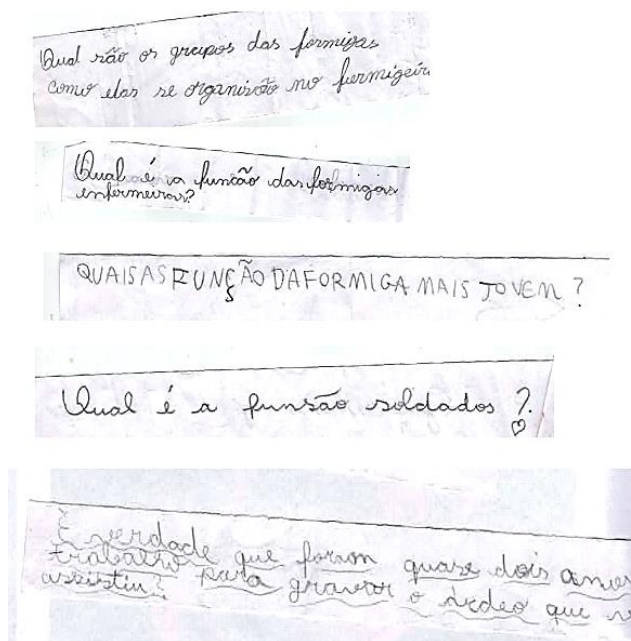 Qual são os grupos das formigas
como elas se organizão no furmigeir
Qual é a funcão das formigas
enfermeiras?
QUAIS AS FUNÇÃO DA FORMIGA MAIS JOVEM ?
Qual é a funsão soldados ?
É verdade que foram quase dois anos
trabalho para gravar o vídeo que
assistiu?